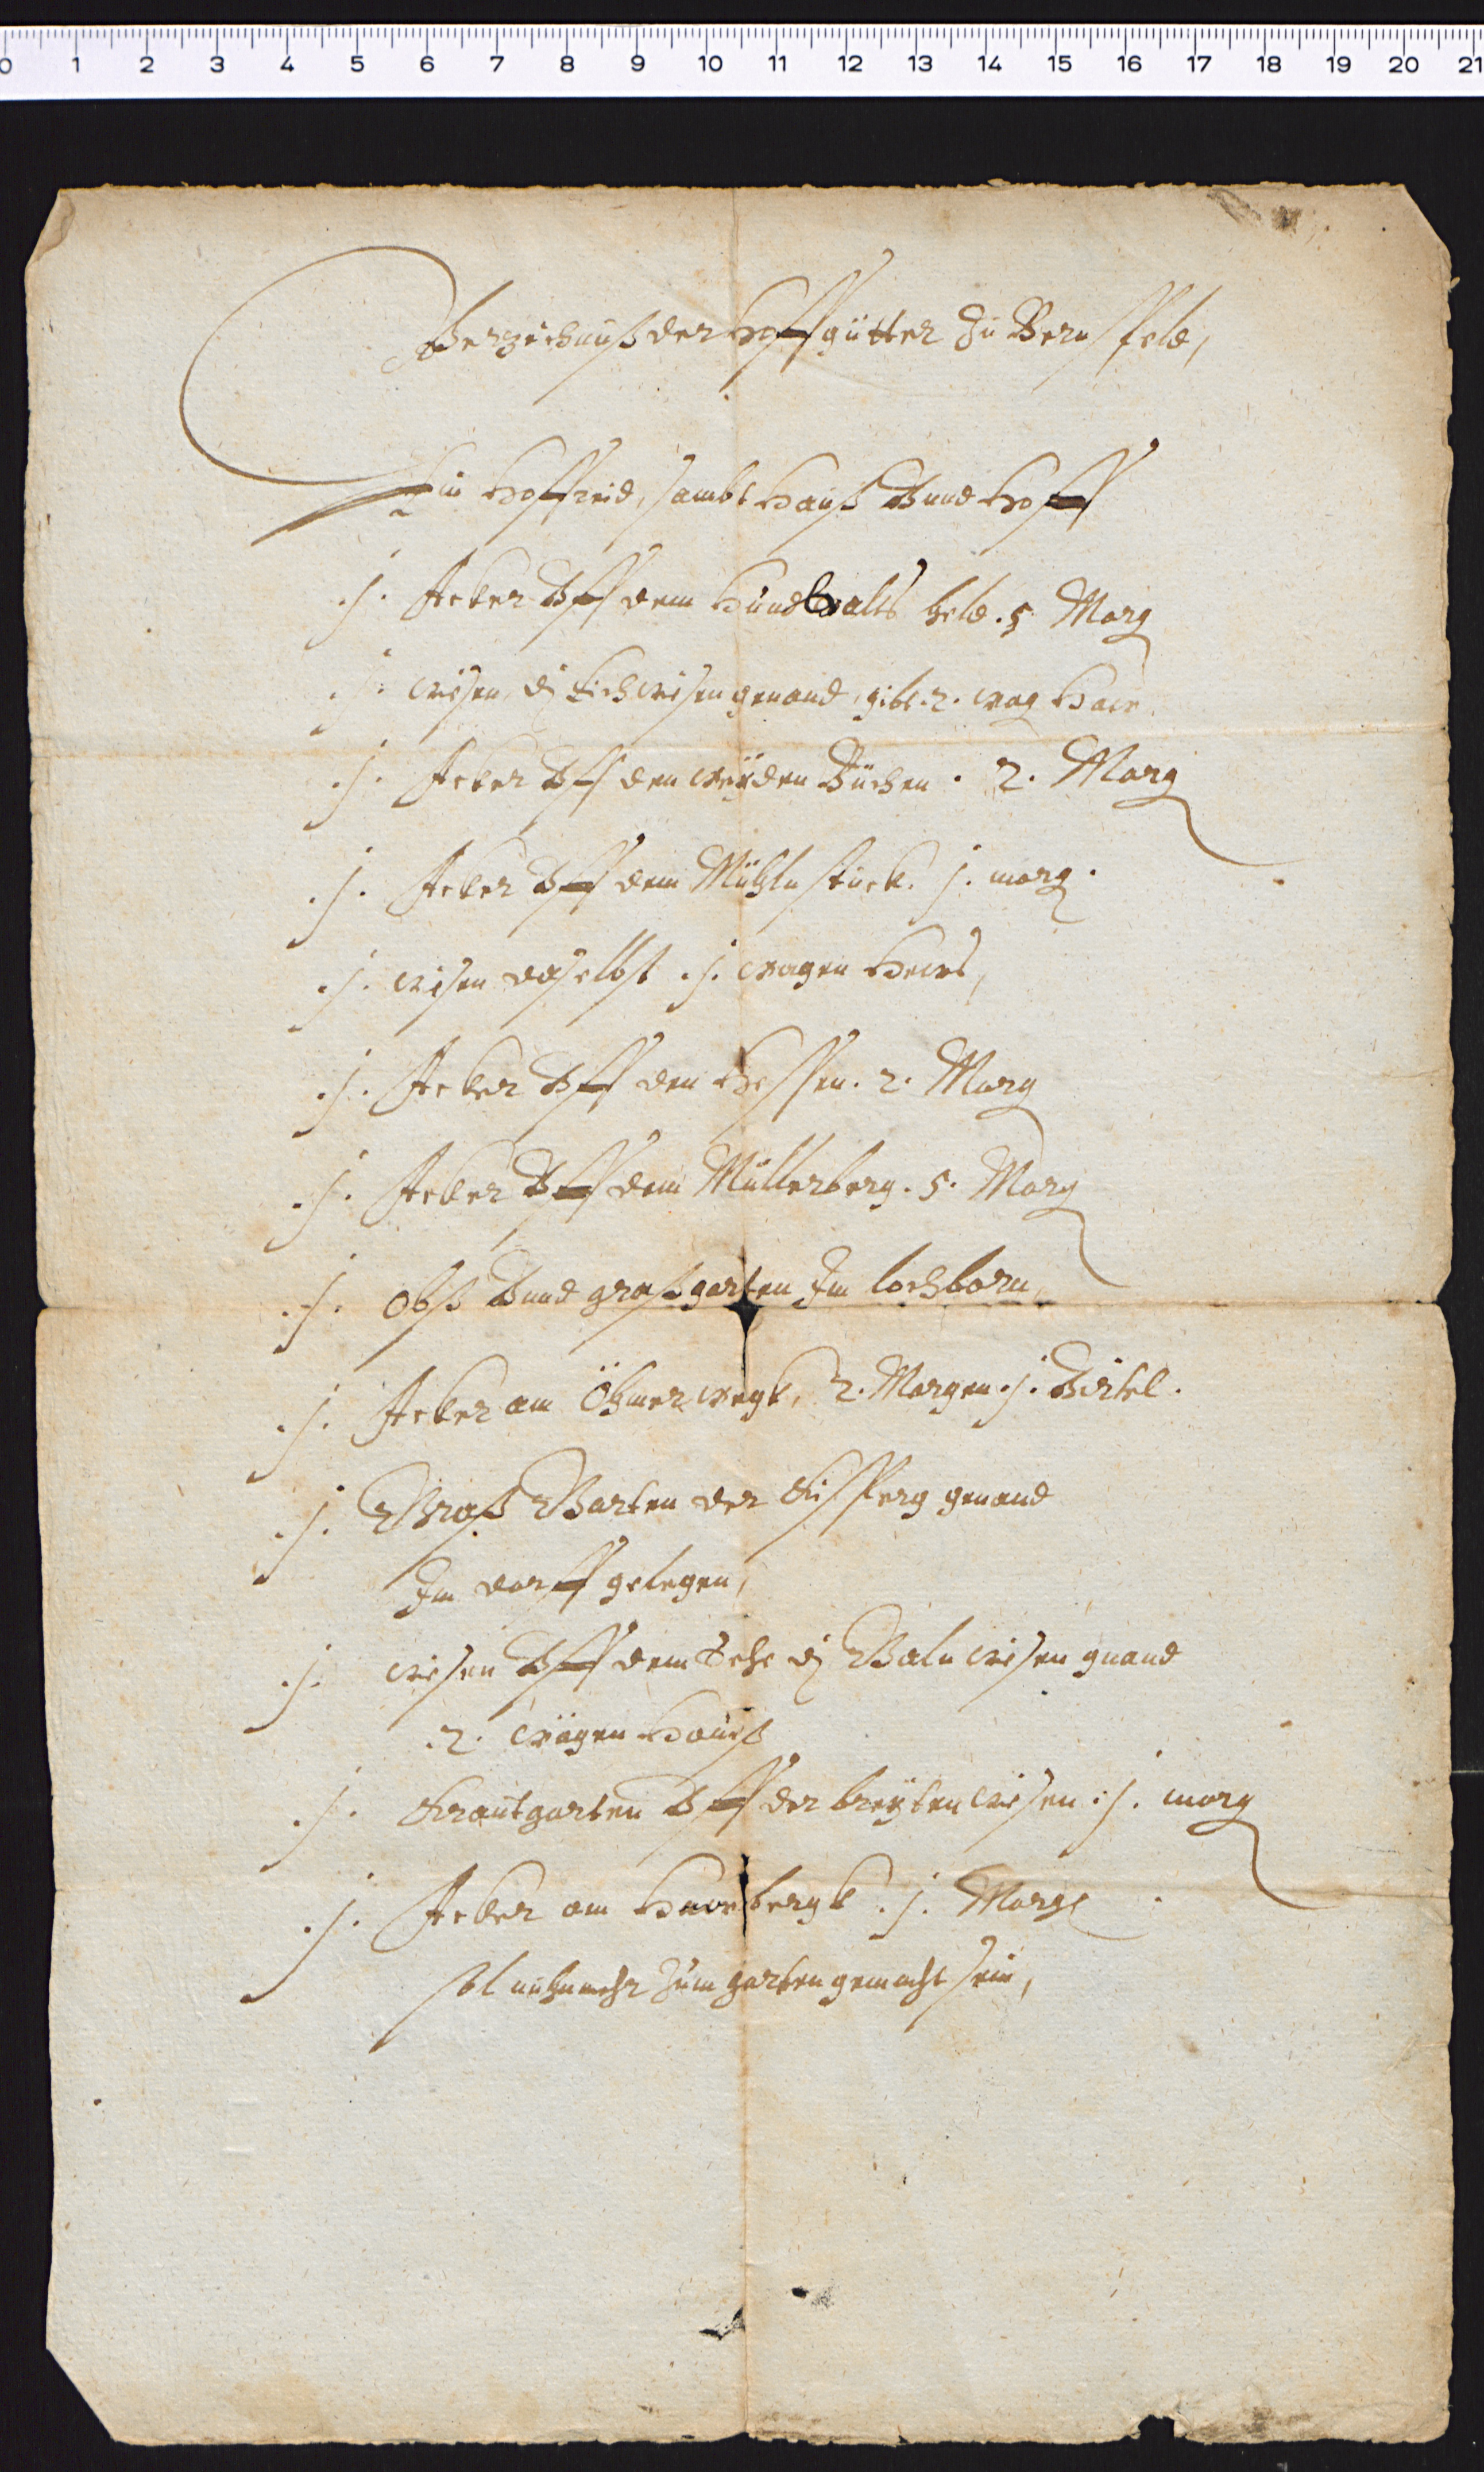 0 1 2 3 4 5 6 7 8 9 10 11 12 13 14 15 16 17 18 19 20 21
Verzeichnuß der Hoffgütter Zu Bernsfeld,
Ein Hoffreid, sambt Hauß Vnnd Hoff
.j. Acker Vff dem held. 5 Morg
.j. wisen, di Eichwisen genand, gibt .2. wag Haw
.j. Acker Vff den weyden Büchen . 2. Morg
.j. Acker Vff dem Mühlnstück. j. morg.
.j. wisen daselbst .j. wagen Hews,
.j. Acker Vff den Hessen. 2. Morg
.j. Acker Vff dem Müllerberg. 5. Morg
.j. Obß Vnnd graßgarten Im lochborn,
.j. Acker am Öhmer wegk, 2. Morgen .j. Virtel.
.j. Graß Garten der genand
Im dorff gelegen,
.j. wisen Vff dem di wisen gnand
.2. wägen Hauß
.j. Krautgarten Vff der breyten wisen .j. morg
.j. Acker am .j. Morg
sol nuhnmehr Zum garten gemacht sein,